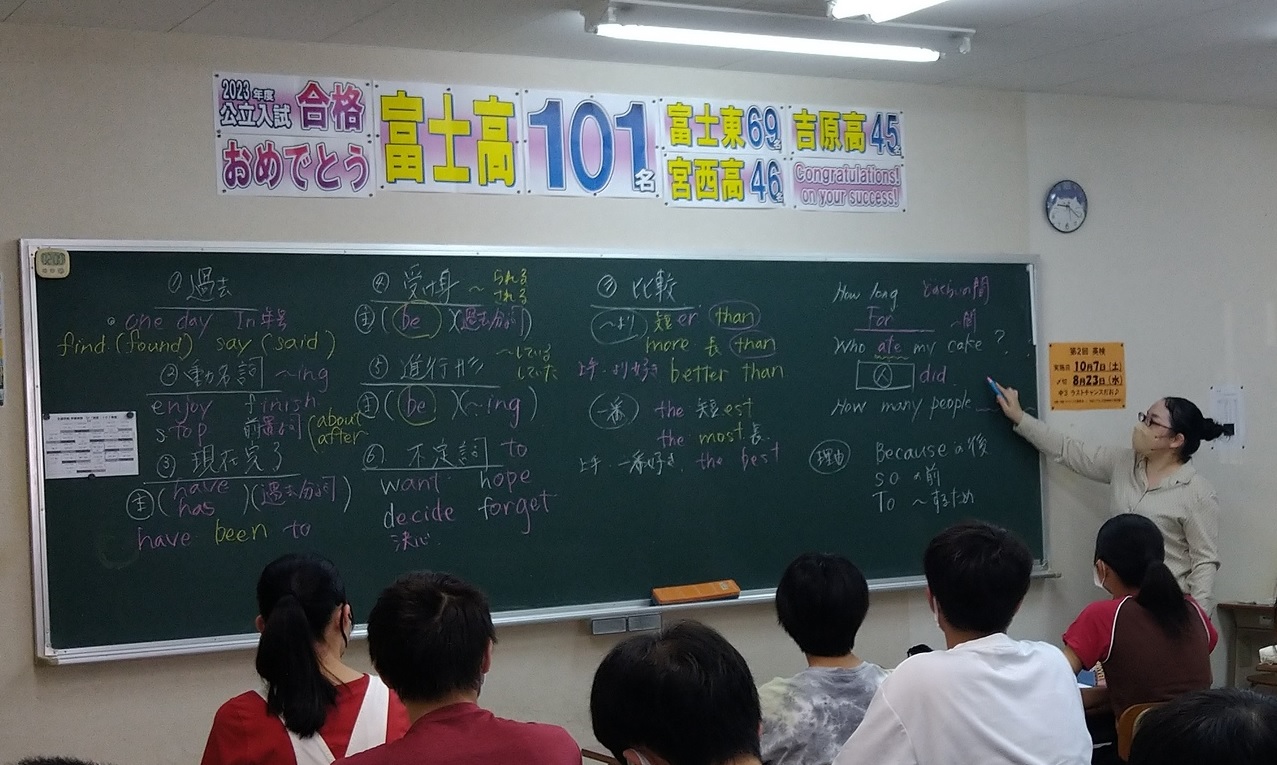 2023年度
公立入試 合格
おめでとう
富士高 101名
富士東 69名
宮西高 46名
吉原高 45名
Congratulations!
on your success!
①過去
one day In 年号
find (found) say (said)
②動名詞 ~ing
enjoy finish
stop 前置詞 (about
after)
③現在完了
主 (have
has) (過去分詞)
have been to
④受身 ~られる
される
主 (be) (過去分詞)
⑤進行形 ~している
していた
主 (be) (~ing)
⑥不定詞 to
want hope
decide forget
決心
⑦比較
~より 短er than
more 長 than
上手・より好き better than
一番 the 短est
the most 長
上手・一番好き the best
How long どれくらいの間
For ~間
Who ate my cake ?
人 did.
How many people
理由 Becauseの後
soの前
To ~するため
第2回 英検
実施日 10月7日(土)
〆切 8月23日(水)
中3 ラストチャンスだお♪